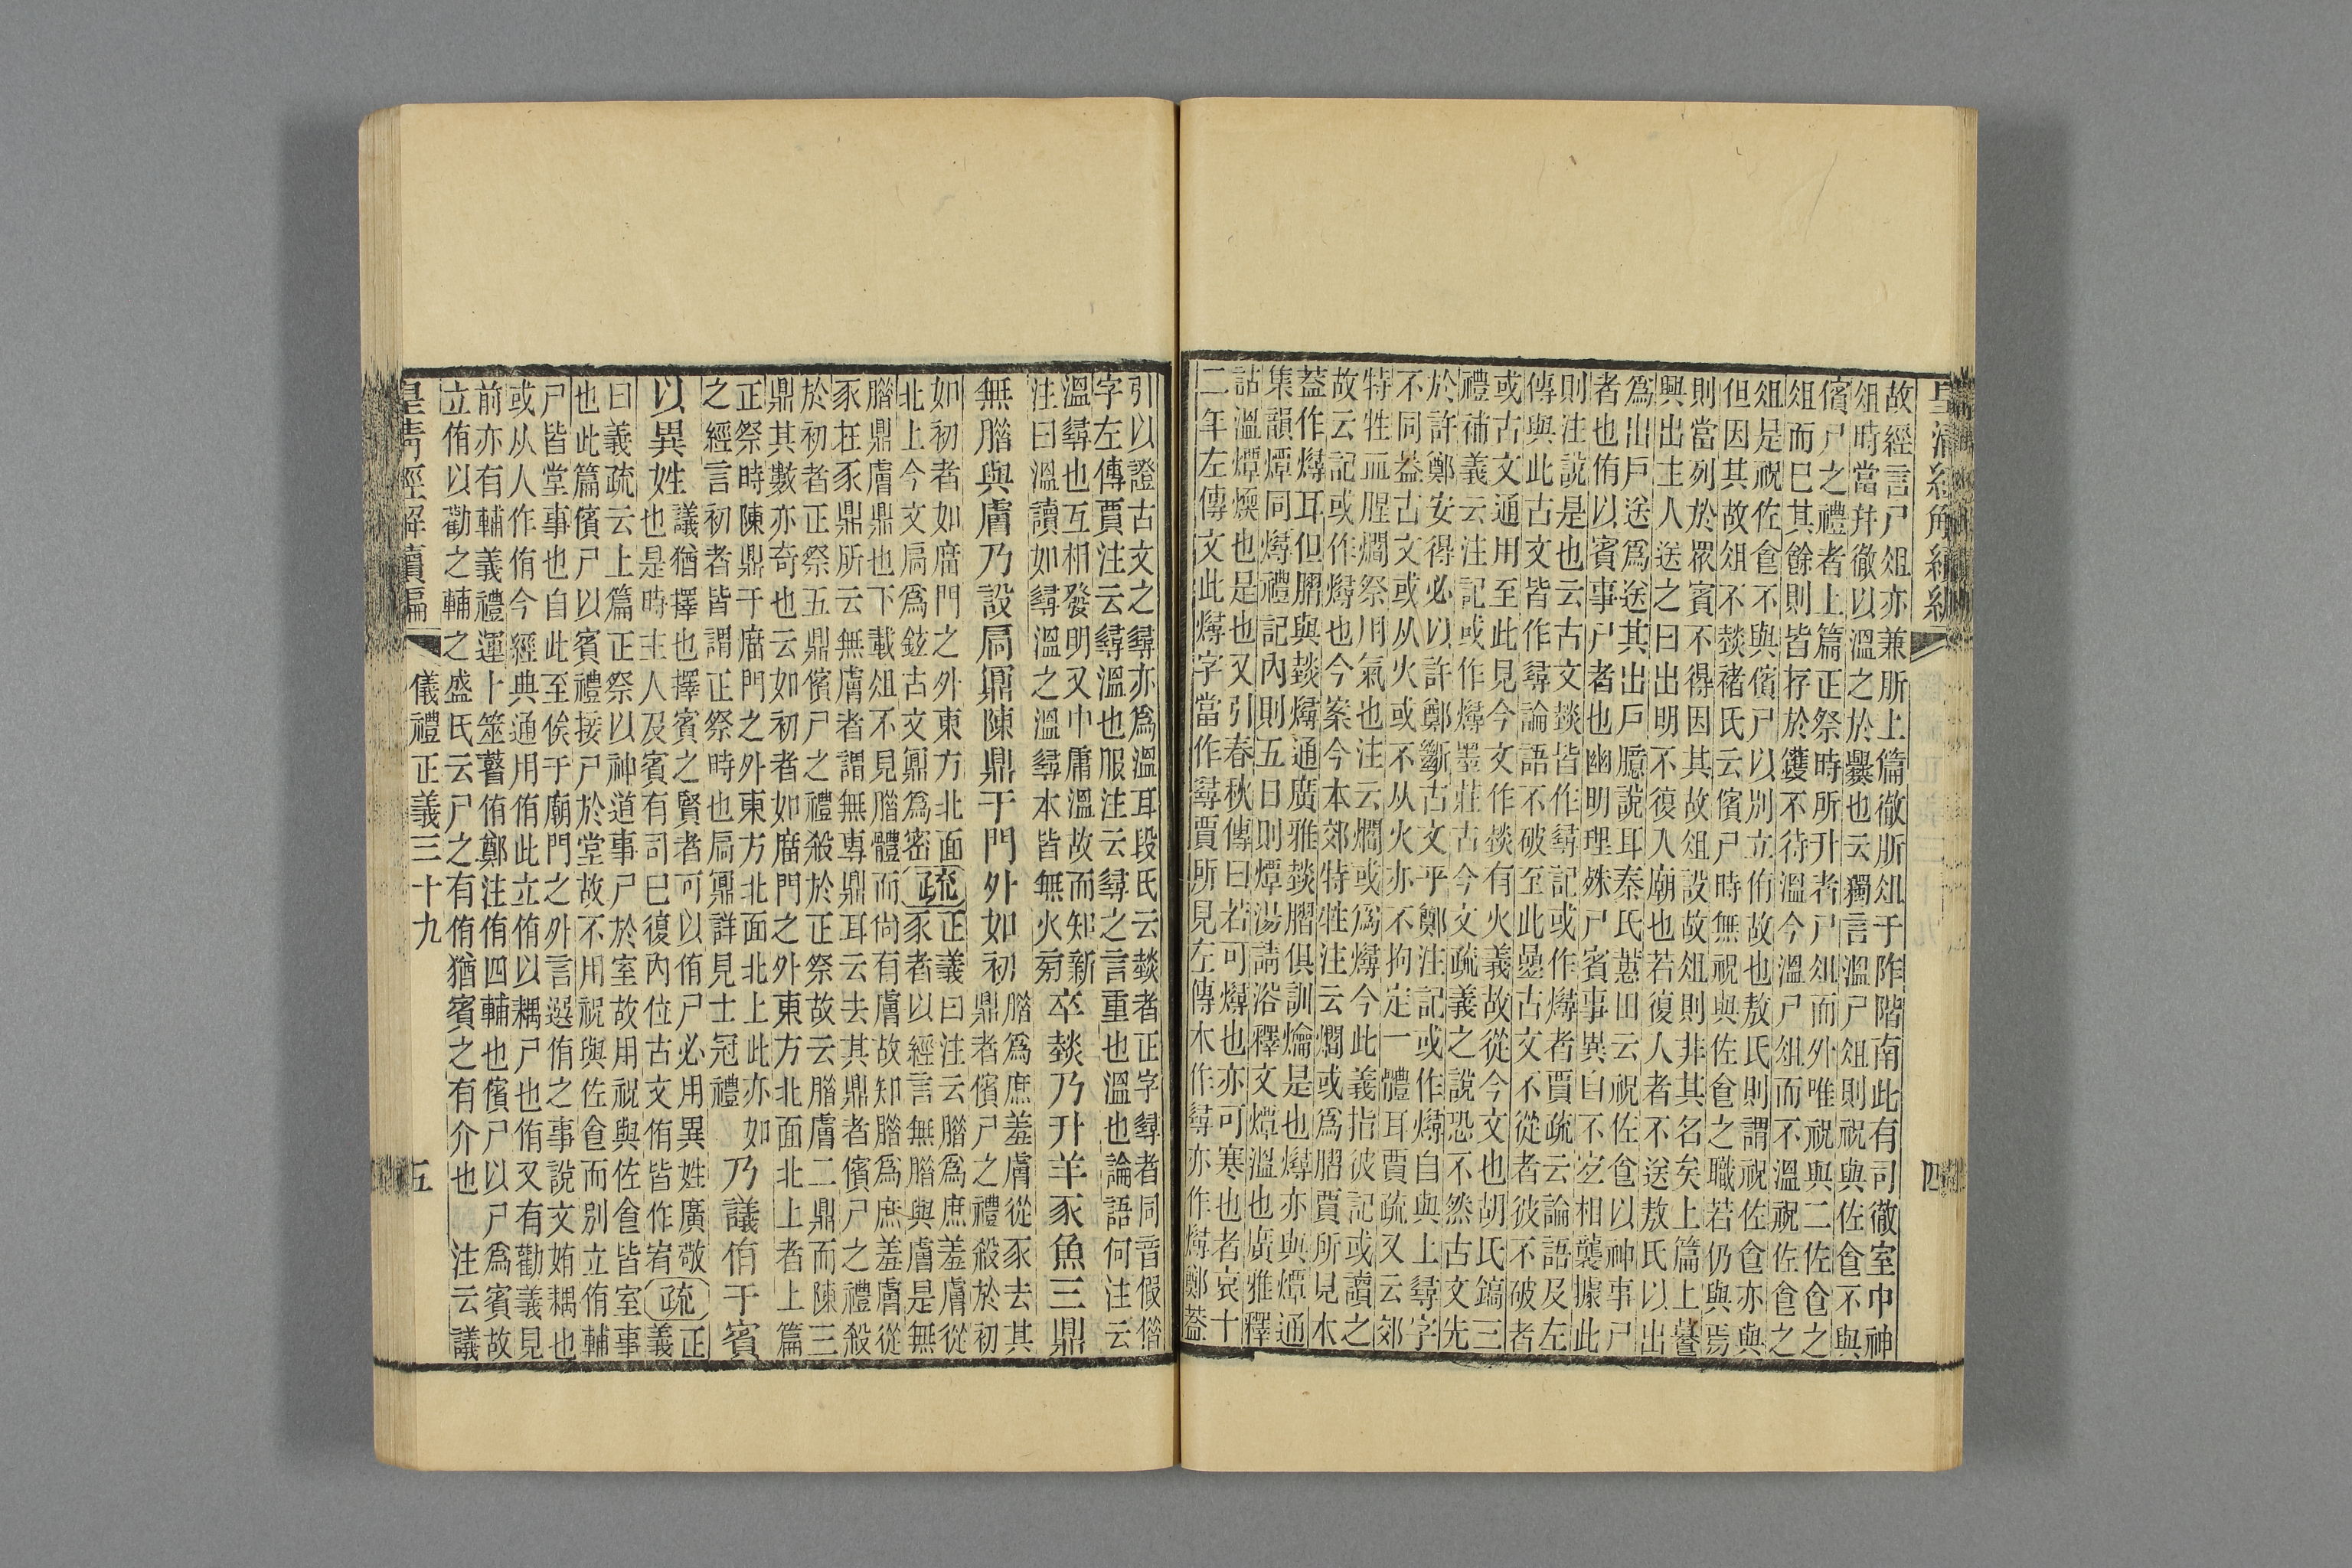 皇清經解續編
四
故經言尸俎亦兼肵上篇徹肵俎于阼階南此有司徹室中神
俎時當幷徹以溫之於爨也云獨言溫尸俎則祝與佐食不與
儐尸之禮者上篇正祭時所升者尸俎而外唯祝與二佐食之
俎而已其餘則皆存於鑊不待溫今溫尸俎而不溫祝佐食之
俎是祝佐食不與儐尸以別立侑故也敖氏則謂祝佐食亦與
但因其故俎不燅褚氏云儐尸時無祝與佐食之職若仍與焉
則當列於眾賓不得因其故俎設故俎則非其名矣上篇上養
興出主人送之曰出明不復入廟也若復人者不送敖氏以出
爲出戶送爲送其出戶臆說耳秦氏蕙田云祝佐食以神事尸
者也侑以賓事尸者也幽明理殊尸賓事異自不宐相襲據此
則注說是也云古文燅皆作尋記或作燖者賈疏云論語及左
傳與此古文皆作尋論語不破至此㬪古文不從者彼不破者
或古文通用至此見今文作燅有火義故從今文也胡氏鎬三
禮補義云注記或作燖墨莊古今文疏義之說恐不然古文先
於許鄭安得必以許鄭斷古文乎鄭注記或作燖自與上尋字
不同葢古文或从火或不从火亦不拘定一體耳賈疏又云郊
特牲血腥爓祭用氣也注云爓或爲燖今此義指彼記或讀之
故云記或作燖也今案今本郊特牲注云爓或爲膶賈所見本
葢作燖耳但膶與燅燖通廣雅燅膶俱訓爚是也燖亦與燂通
集韻燂同燖禮記內則五日則燂湯請浴釋文燂溫也廣雅釋
詁溫燂煗也是也又引春秋傳曰若可燖也亦可寒也者哀十
二年左傳文此燖字當作尋賈所見左傳本作尋亦作燖鄭葢
引以證古文之尋亦爲溫耳段氏云燅者正字尋者同音假借
字左傳賈注云尋溫也服注云尋之言重也溫也論語何注云
溫尋也互相發明又中庸溫故而知新
注曰溫讀如尋溫之溫尋本皆無火旁卒燅乃升羊豕魚三鼎
無腊與膚乃設扃鼏陳鼎于門外如初腊爲庶羞膚從豕去其
鼎者儐尸之禮殺於初
如初者如廟門之外東方北面
北上今文扃爲鉉古文鼏爲密疏正義曰注云腊爲庶羞膚從
豕者以經言無腊與膚是無
腊鼎膚鼎也下載俎不見腊體而尙有膚故知腊爲庶羞膚從
豕在豕鼎所云無膚者謂無專鼎耳云去其鼎者儐尸之禮殺
於初者正祭五鼎儐尸之禮殺於正祭故云腊膚二鼎而陳三
鼎其數亦奇也云如初者如廟門之外東方北面北上者上篇
正祭時陳鼎于廟門之外東方北面北上此亦如
之經言初者皆謂正祭時也扃鼏詳見士冠禮乃議侑于賓
以異姓議猶擇也擇賓之賢者可以侑尸必用異姓廣敬
也是時主人及賓有司已復內位古文侑皆作宥疏正
義
曰義疏云上篇正祭以神道事尸於室故用祝與佐食皆室事
也此篇儐尸以賓禮接尸於堂故不用祝與佐食而別立侑輔
尸皆堂事也自此至俟于廟門之外言選侑之事說文姷耦也
或从人作侑今經典通用侑此立侑以耦尸也侑又有勸義見
前亦有輔義禮運卜筮瞽侑鄭注侑四輔也儐尸以尸爲賓故
立侑以勸之輔之盛氏云尸之有侑猶賓之有介也注云議
皇清經解續編
儀禮正義三十九
五